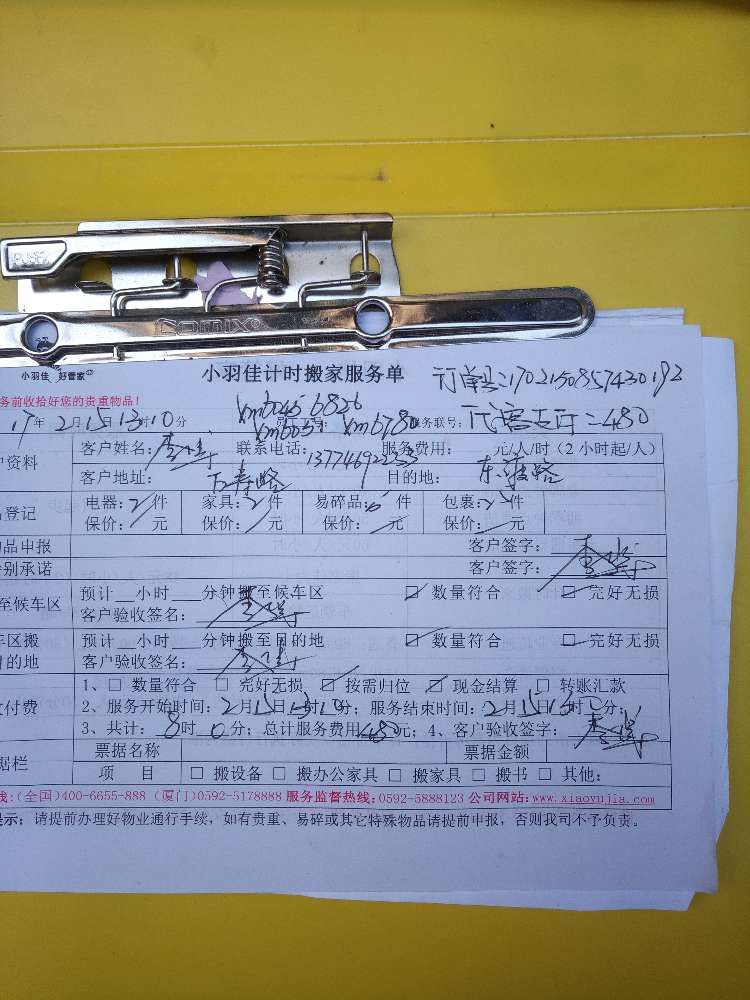 COMIX
小羽佳 好管家
小羽佳计时搬家服务单
订单号:1702150857430192
务前收拾好您的贵重物品!
17年2月15日13时10分
xm6045 6826
xm6780
务联号:
代客支付:480
户资料
客户姓名:
联系电话:13774692233
服务费用: 元/人/时(2小时起/人)
客户地址:
目的地:
登记
电器: 件 家具: 件 易碎品: 件 包裹: 件
保价: 元 保价: 元 保价: 元 保价: 元
物品申报
客户签字:
别承诺
客户签字:
至候车区
预计__小时__分钟搬至候车区 ☑ 数量符合 ☑ 完好无损
客户验收签名:
车区搬
目的地
预计__小时__分钟搬至目的地 ☑ 数量符合 ☑ 完好无损
客户验收签名:
付费
1、□ 数量符合 □ 完好无损 ☑ 按需归位 ☑ 现金结算 □ 转账汇款
2、服务开始时间:2月15日13时10分;服务结束时间:2月15日16时0分;
3、共计:8时0分;总计服务费用480元;4、客户验收签字:
据栏
票据名称 票据金额
项 目 □ 搬设备 □ 搬办公家具 □ 搬家具 □ 搬书 □ 其他:
线:(全国)400-6655-888 (厦门)0592-5178888 服务监督热线:0592-5888123 公司网站:www.xiaoyujia.com
提示:请提前办理好物业通行手续,如有贵重、易碎或其它特殊物品请提前申报,否则我司不予负责。